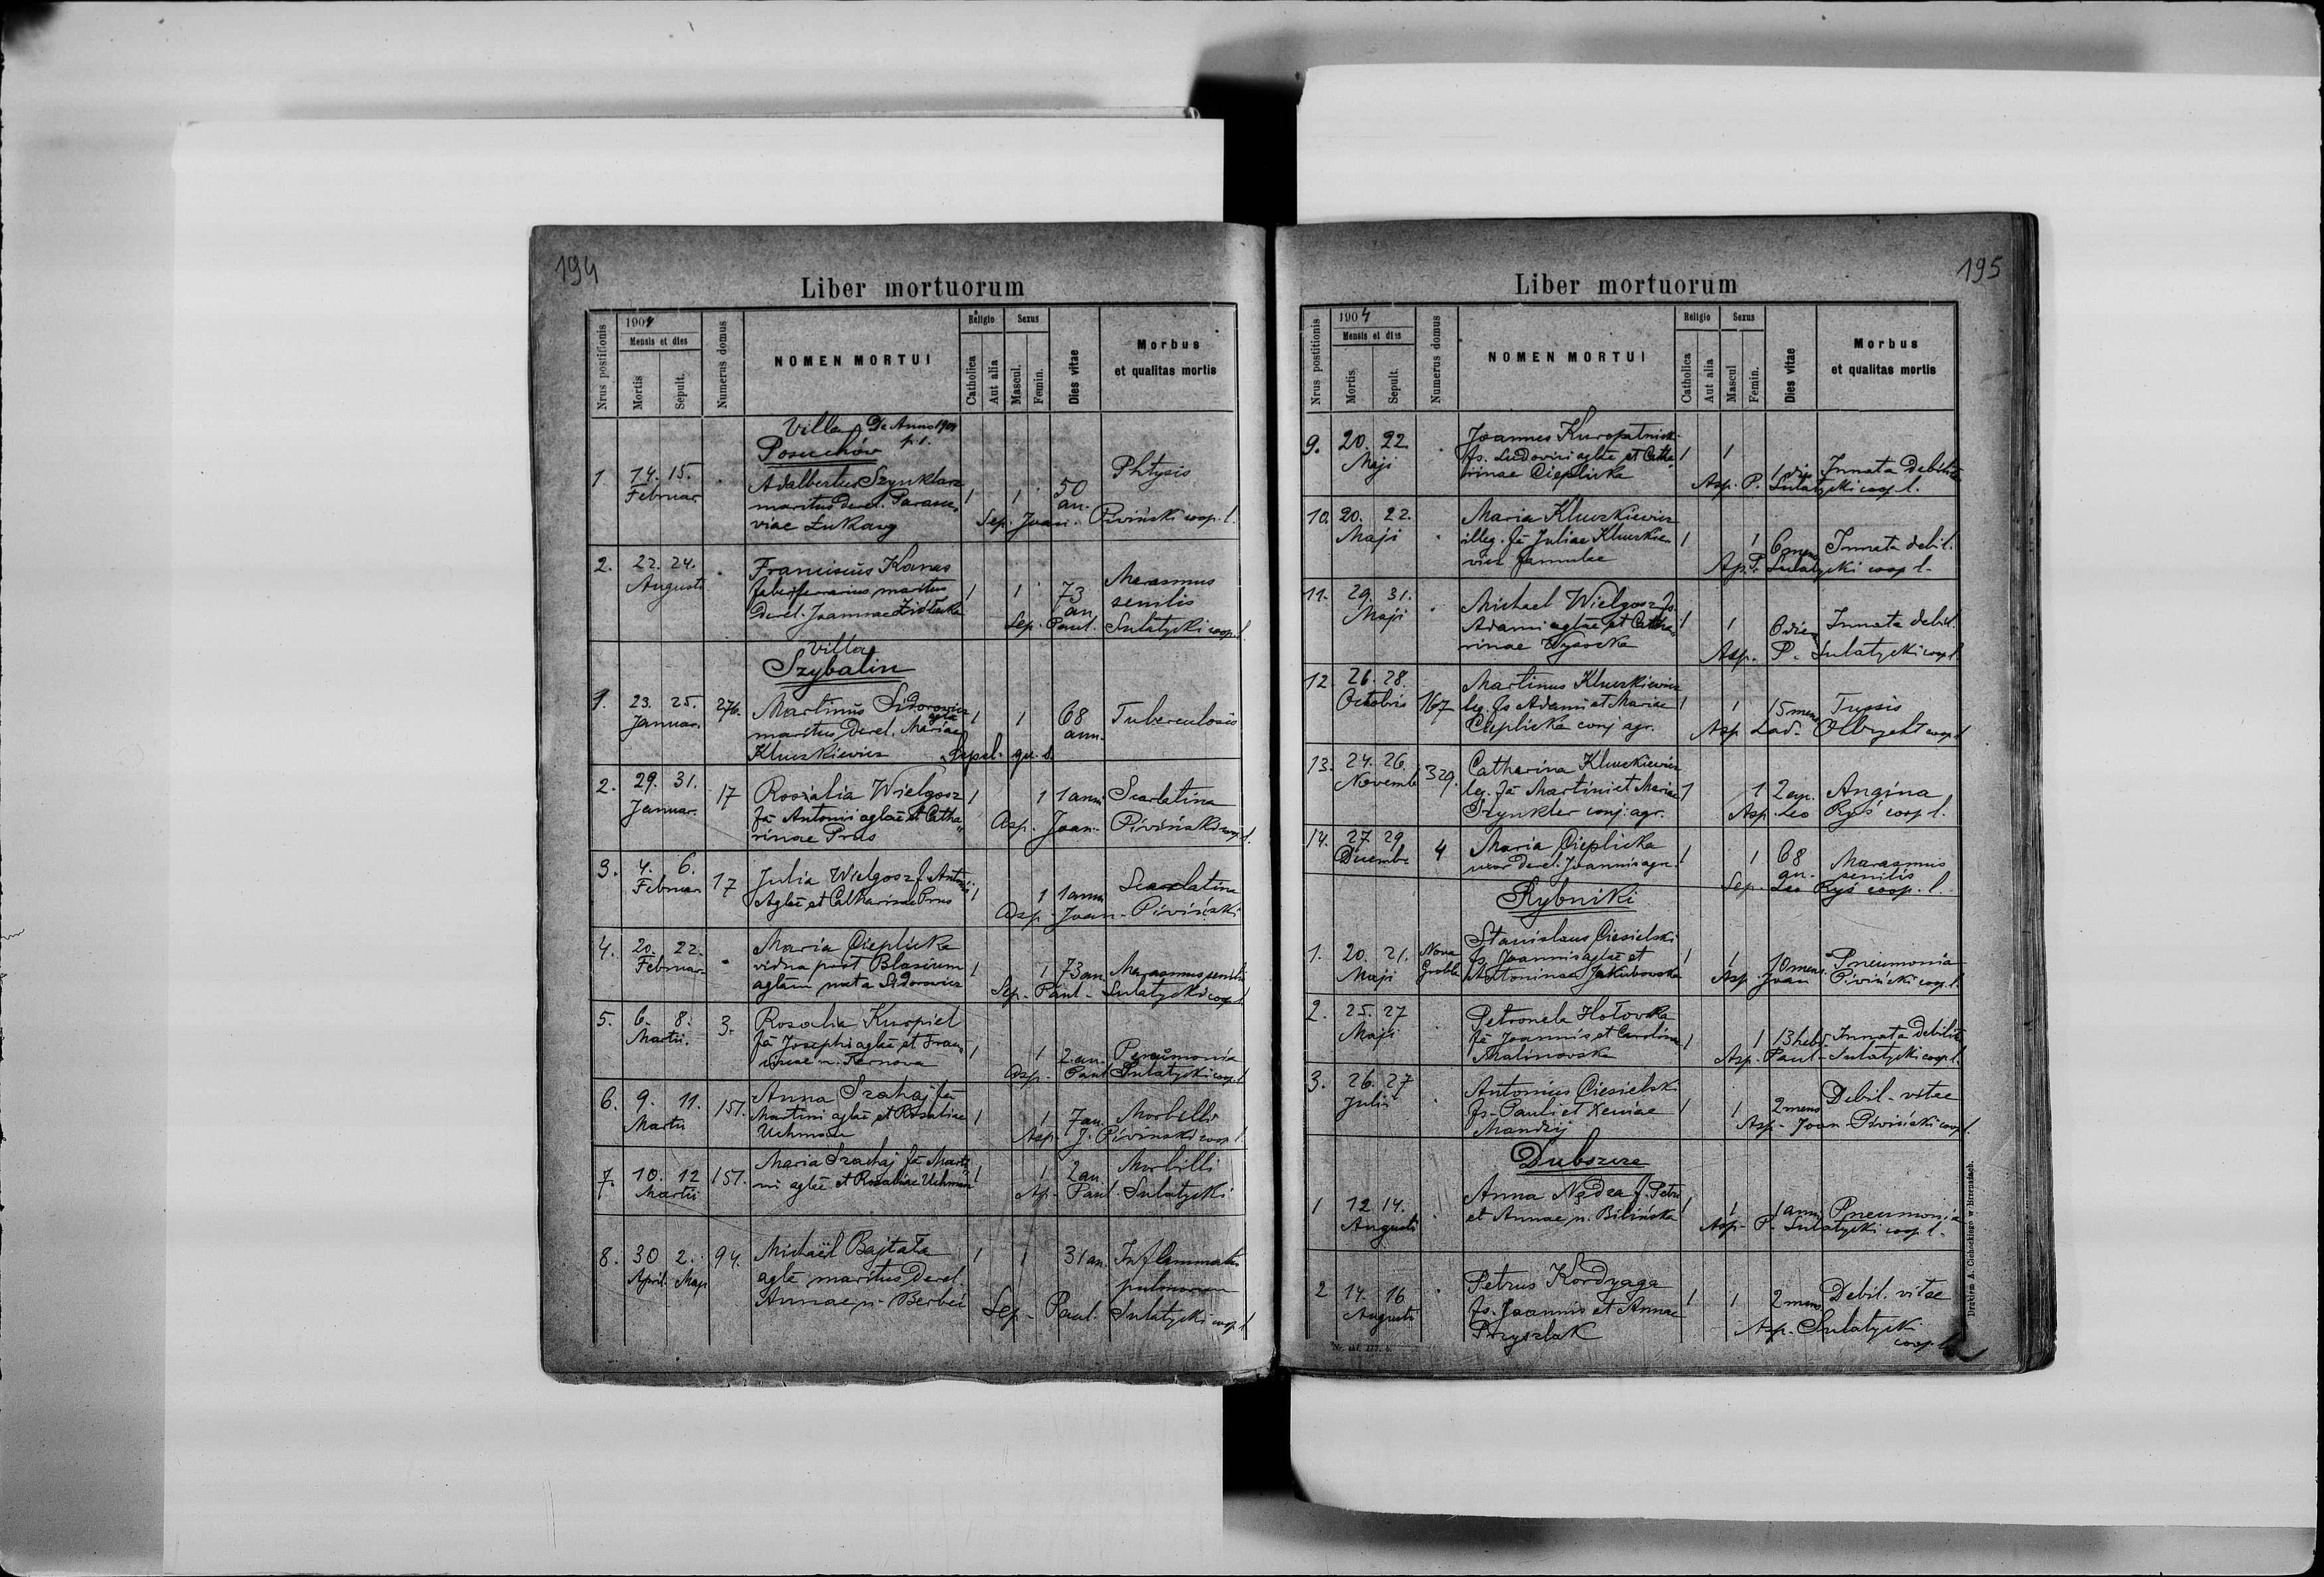 194
Liber mortuorum
Nrus postitionis
1904
Mensis et dies
Mortis
Sepult.
Numerus domus
NOMEN MORTUI
Religio
Catholica
Aut alia
Sexus
Mascul.
Femin.
Dies vitae
Morbus
et qualitas mortis
Villa De Anno 1904
Posuchów
1. 14. 15. Februar.
Adalbertus Szynklarz
maritus derel. Parasce-
viae Łukawy
1 1 50 an. Phtysis
Sep. Joan. Piviński coop. l.
2. 22. 24. Augusti
Franciscus Kanas
faber ferrarius maritus
derel. Joannae Ziółecka
1 1 73 an. Marasmus senilis
Sep. Paul. Sulatycki coop. l.
Villa
Szybalin
1. 23. 25. Januar. 276.
Martinus Sidorowicz
agla
maritus derel. Mariae
Kluszkiewicz
1 1 68 ann. Tuberculosis
Sepel. qu. s.
2. 29. 31. Januar. 17
Rosalia Wielgosz
fa Antonii aglae et Catha
rinae Prus
1 1 1 anni Scarlatina
Asp. Joan. Piviński coop. l.
3. 4. 6. Februar. 17
Julia Wielgosz f. Antonii
Aglae et Catharinae Prus
1 1 1 anni Scarlatina
Asp. Joan. Piviński
4. 20. 22. Februar.
Maria Cieplicka
vidua post Blasium
aglam nata Sidorowicz
1 1 73 an. Marasmus senilis
Sep. Paul. Sulatycki coop. l.
5. 6. 8. Martii. 3.
Rosalia Kurpiel
fa Josephi aglae et Fran
1 1 2 an. Pneumonia
Asp. Paul Sulatycki coop. l.
6. 9. 11. Martii 151.
Anna Szahaj fa
Martini aglae et Rosaliae
Uchman
1 1 7 an. Morbilli
Asp. J. Piviński coop. l.
7. 10. 12 Martii 151.
Maria Szachaj fa Marti
ni aglae et Rosaliae Uchman
1 1 2 an. Morbilli
Asp. Paul. Sulatycki
8. 30 2. April. Maji 94.
Michaël Bajtała
aglae maritus derel.
Annae n.
1 1 31 an. Inflammatio
pulmonum
Sep. Paul. Sulatycki coop. l.
195
Liber mortuorum
Nrus postitionis
1904
Mensis et dies
Mortis.
Sepult.
Numerus domus
NOMEN MORTUI
Religio
Catholica
Aut alia
Sexus
Mascul
Femin.
Dies vitae
Morbus
et qualitas mortis
9. 20. 22 Maji
Joannes Kuropatnick
fs. Ludovici aglae et Catha
rinae Cieplicka
1 1 1 die Innata Debilitas
Asp. P. Sulatycki coop l.
10. 20. 22. Maji
Maria Kluszkiewicz
illeg. fa Juliae Kluszkie
vicz famulae
1 1 6 mens Innata debil.
Asp. P. Sulatycki coop l.
11. 29. 31. Maji
Michael Wielgosz fs.
Adami aglae et Catha
rinae Wysocka
1 1 6 dies Innata debil.
Asp. P. Sulatycki coop l.
12. 26. 28. Octobris 167
Martinus Kluszkiewicz
leg. fs Adami et Mariae
Cieplicka conj. agr.
1 1 15 mens Tussis
Asp Lad. Olbrycht coop l
13. 24. 26. Novembr 329.
Catharina Kluszkiewicz
leg. fa Martini et Mariae
Szynkler conj. agr.
1 1 2 an. Angina
Asp Leo Ryś coop l.
14. 27. 29. Decembr 4
Maria Cieplicka
uxor derel. Joannis agr.
1 1 68 an. Marasmus senilis
Sep. Leo Ryś coop. l.
Rybniki
1. 20. 21. Maji Nova Grobla
Stanislaus Ciesielski
fs Joannis aglae et
Antoninae Jakubowska
1 1 10 mens. Pneumonia
Asp. Joan Piviński coop. l.
2. 25. 27 Maji
Petronela Hołowka
fa Joannis et Carolina
Malinowska
1 1 13 hebd. Innata Debilitas
Asp. Paul Sulatycki coop. l.
3. 26. 27 Julii
Antonius Ciesielski
fs. Pauli et Xeniae
Mandzij
1 1 2 mens Debil. vitae
Asp. Joan Piviński coop l.
Dubszcze
1 12 14. Augusti
Anna Nędza f. Petri
et Annae n. Bilińska
1 1 1 anni Pneumonia
Asp. P. Sulatycki coop l.
2 14. 16 Augusti
Petrus Kordyaga
fs. Joannis et Annae
Przyszlak
1 1 2 mens Debil. vitae
Asp. Sulatycki
coop l.
Drukiem A. Cichockiego w Brzeżanach.